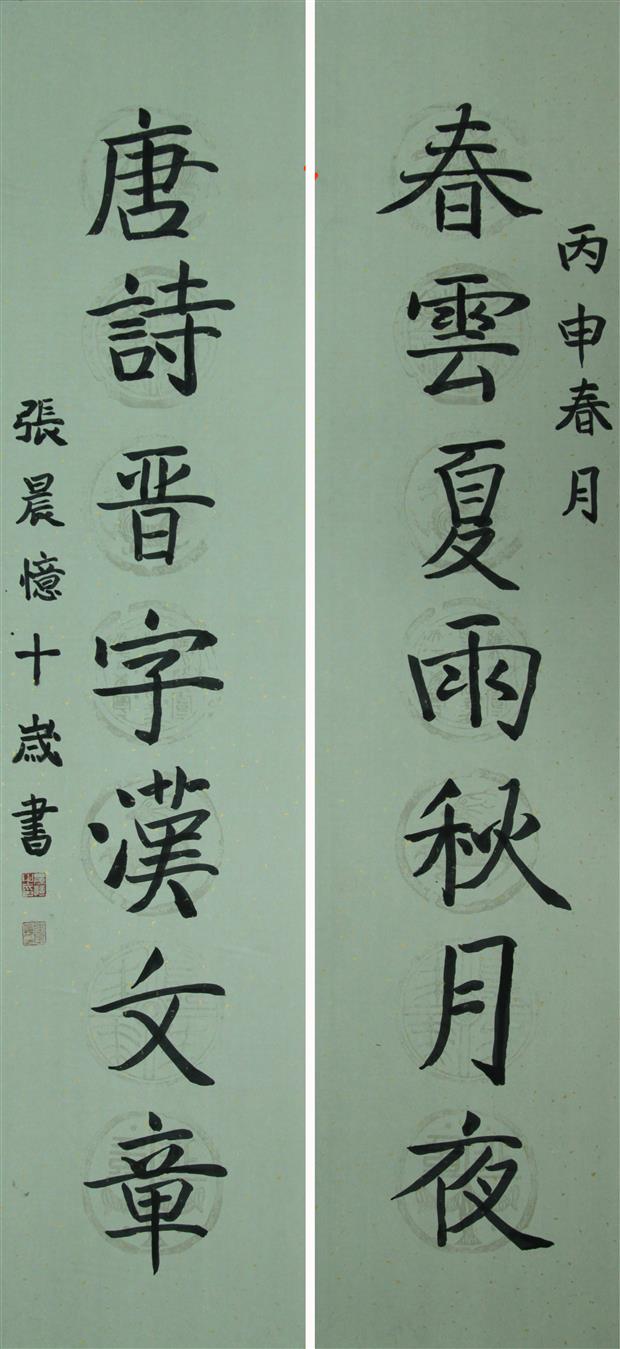 丙申春月
春雲夏雨秋月夜
唐詩晋字漢文章
張晨憶十歲書